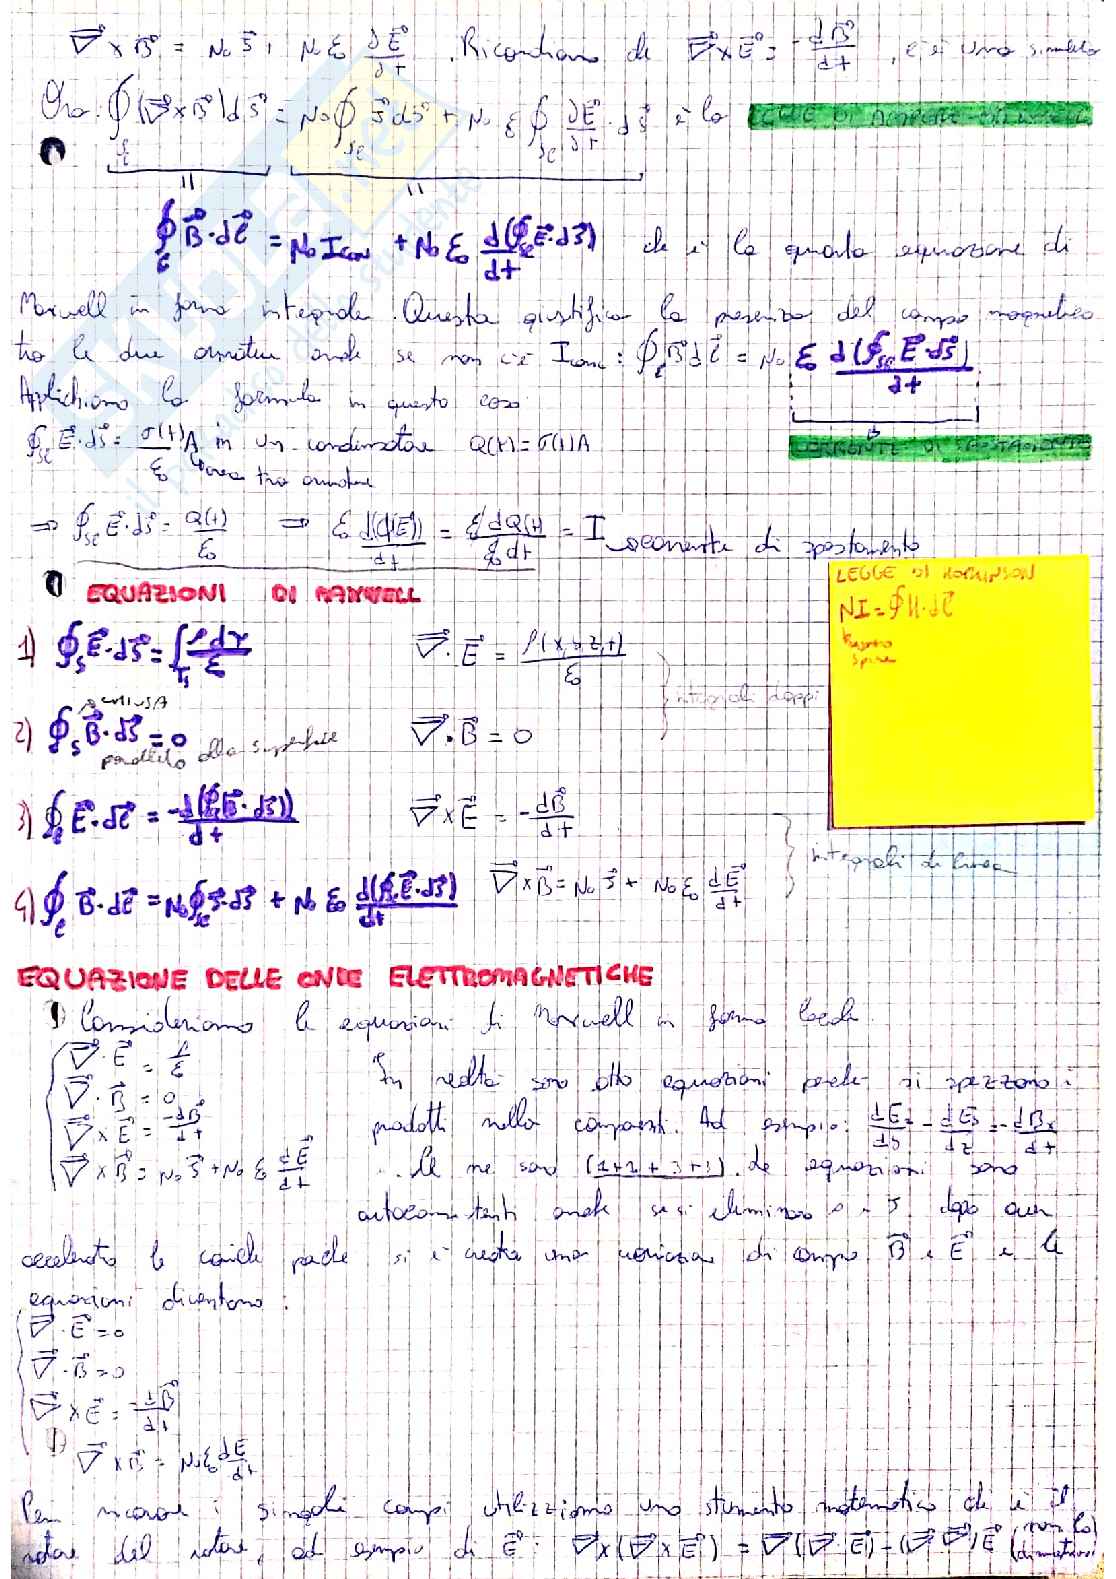 ∇⃗ × B⃗ = μ₀ J⃗ + μ₀ ε₀ ∂E⃗/∂t . Ricordiamo che ∇⃗ × E⃗ = -dB⃗/dt , c'è una simmetria
Ora: ∮(∇⃗ × B⃗) dS⃗ = μ₀ ∮_Sc J⃗ dS⃗ + μ₀ ε ∮_Sc ∂E⃗/∂t · dS⃗ è la LEGGE DI AMPERE-MAXWELL
∮_c B⃗ · dl⃗ = μ₀ Icon + μ₀ ε₀ d(∮_Sc E⃗ · dS⃗)/dt che è la quarta equazione di
Maxwell in forma integrale. Questa giustifica la presenza del campo magnetico
tra le due armature anche se non c'è Iconc : ∮_c B⃗ dl⃗ = μ₀ ε₀ d(∮_Sc E⃗ · dS⃗)/dt
Applichiamo la formula in questo caso
∮_Sc E⃗ · dS⃗ = σ(t)A/ε₀ in un condensatore Q(t) = σ(t)A CORRENTE DI SPOSTAMENTO
area tra armature
⇒ ∮_Sc E⃗ · dS⃗ = Q(t)/ε₀ ⇒ ε₀ d(ϕ(E⃗))/dt = ε₀ dQ(t)/ε₀ dt = I corrente di spostamento
EQUAZIONI DI MAXWELL
LEGGE DI HOPKINSON
NI = ∮ H · dl⃗
numero
spire
1) ∮_S E⃗ · dS⃗ = ∫_τs ρ dτ/ε ∇⃗ · E⃗ = ρ(x,y,z,t)/ε₀
CHIUSA integrali doppi
2) ∮_S B⃗ · dS⃗ = 0 ∇⃗ · B⃗ = 0
parallelo alla superficie
3) ∮_c E⃗ · dl⃗ = -d(∮_c B⃗ · dS⃗)/dt ∇⃗ × E⃗ = -dB⃗/dt
integrali di linea
4) ∮_c B⃗ · dl⃗ = μ₀ ∮_Sc J⃗ · dS⃗ + μ₀ ε₀ d(∮_Sc E⃗ · dS⃗)/dt ∇⃗ × B⃗ = μ₀ J⃗ + μ₀ ε₀ dE⃗/dt
EQUAZIONE DELLE ONDE ELETTROMAGNETICHE
Consideriamo le equazioni di Maxwell in forma locale.
∇⃗ · E⃗ = ρ/ε
∇⃗ · B⃗ = 0
∇⃗ × E⃗ = -dB⃗/dt
∇⃗ × B⃗ = μ₀ J⃗ + μ₀ ε dE⃗/dt
In realtà sono otto equazioni perché si spezzano i
prodotti nelle componenti. Ad esempio: dEz/dy - dEy/dz = -dBx/dt
Ce ne sono (1+1+3+3). Le equazioni sono
autoconsistenti anche se si eliminano ρ e J dopo aver
accelerato le cariche perché si è creata una variazione di campo B⃗ e E⃗ e le
equazioni diventano:
∇⃗ · E⃗ = 0
∇⃗ · B⃗ = 0
∇⃗ × E⃗ = -dB⃗/dt
∇⃗ × B⃗ = μ₀ ε₀ dE/dt
Per ricavare i singoli campi utilizziamo uno strumento matematico che è il
rotore del rotore, ad esempio di E⃗ : ∇⃗ × (∇⃗ × E⃗) = ∇⃗(∇⃗ · E⃗) - (∇⃗ · ∇⃗)E⃗ (non lo
dimostriamo)